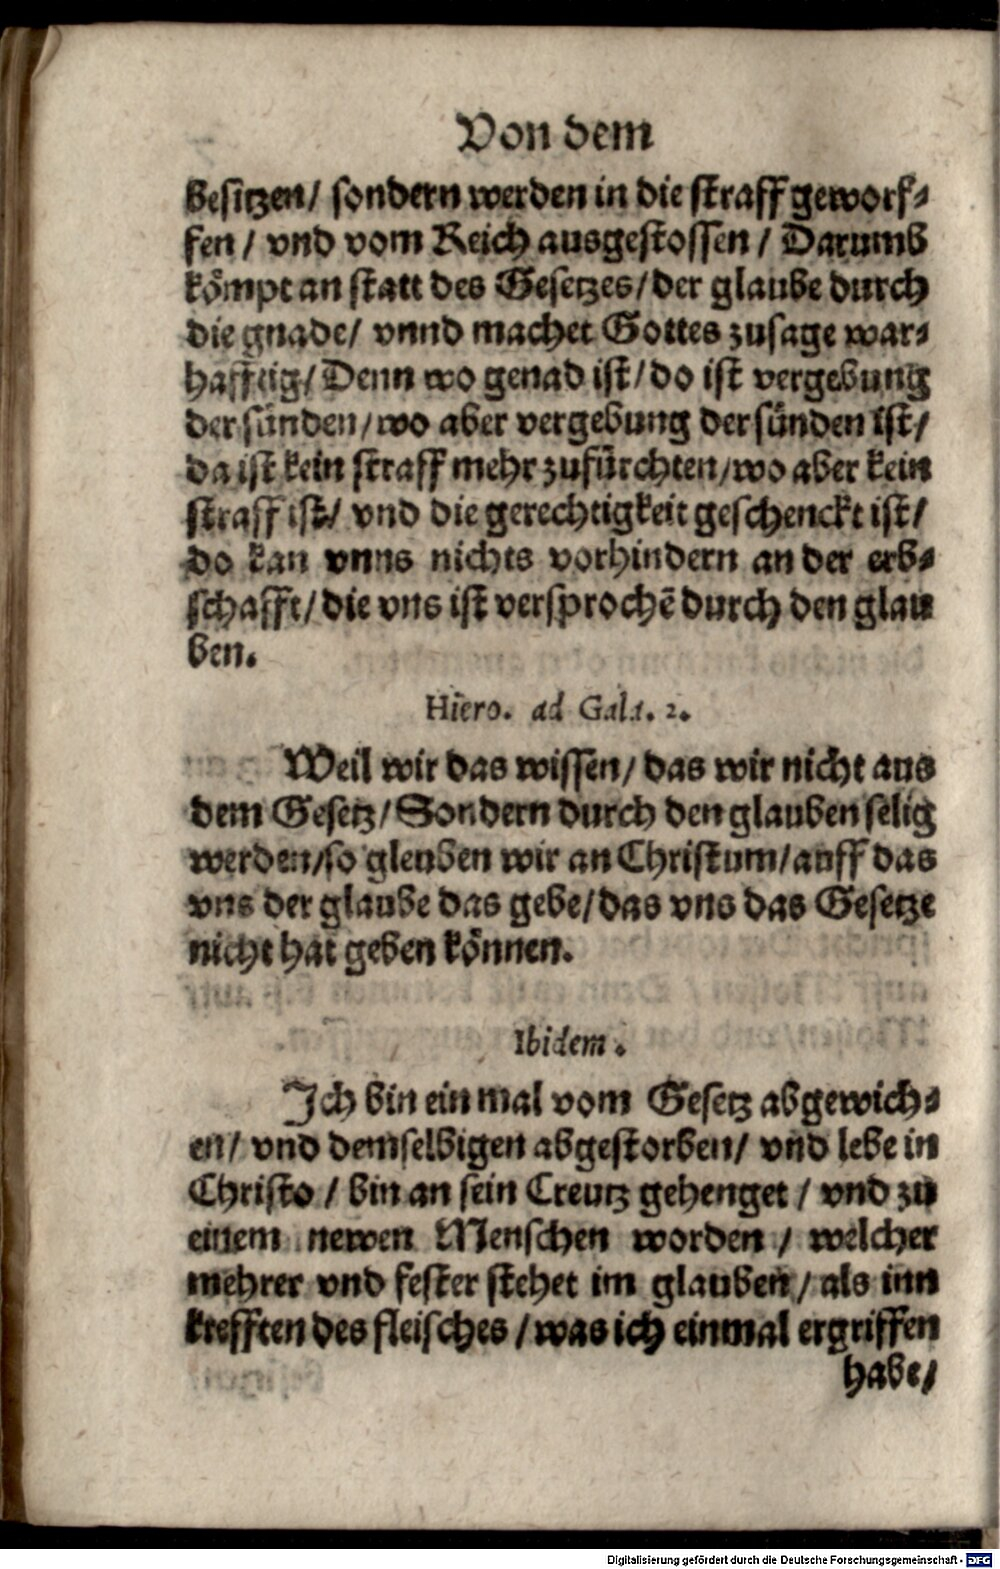 Von dem
besitzen/ sondern werden in die straff geworf-
fen / vnd vom Reich ausgestossen / Darumb
kömpt an statt des Gesetzes/ der glaube durch
die gnade/ vnnd machet Gottes zusage war-
hafftig/ Denn wo genad ist/ do ist vergebung
der sünden/ wo aber vergebung der sünden ist/
da ist kein straff mehr zufürchten/ wo aber kein
straff ist/ vnd die gerechtigkeit geschenckt ist/
do kan vnns nichts vorhindern an der erb-
schafft/ die vns ist versprochē durch den glau
ben.
Hiero. ad Gala. 2.
Weil wir das wissen/ das wir nicht aus
dem Gesetz/ Sondern durch den glauben selig
werden/ so gleuben wir an Christum/ auff das
vns der glaube das gebe/ das vns das Gesetze
nicht hat geben können.
Ibidem.
Ich bin ein mal vom Gesetz abgewich-
en/ vnd demselbigen abgestorben/ vnd lebe in
Christo / bin an sein Creutz gehenget / vnd zu
einem newen Menschen worden / welcher
mehrer vnd fester stehet im glauben / als inn
krefften des fleisches / was ich einmal ergriffen
habe/
Digitalisierung gefördert durch die Deutsche Forschungsgemeinschaft - DFG